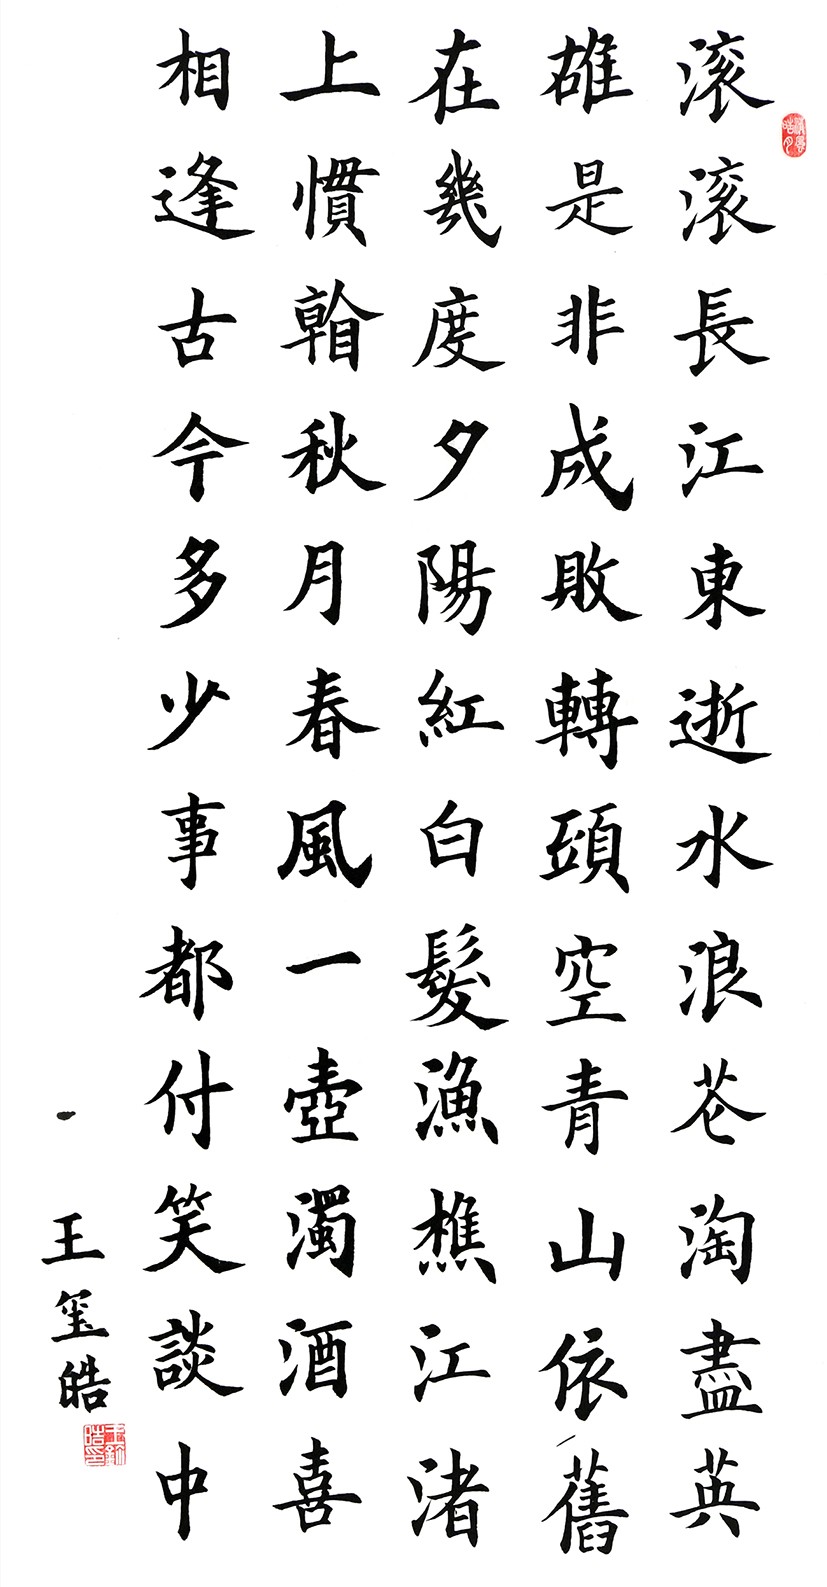 滚滚長江東逝水浪花淘盡英
雄是非成敗轉頭空青山依舊
在幾度夕陽紅白髮漁樵江渚
上慣看秋月春風一壺濁酒喜
相逢古今多少事都付笑談中
王玺皓